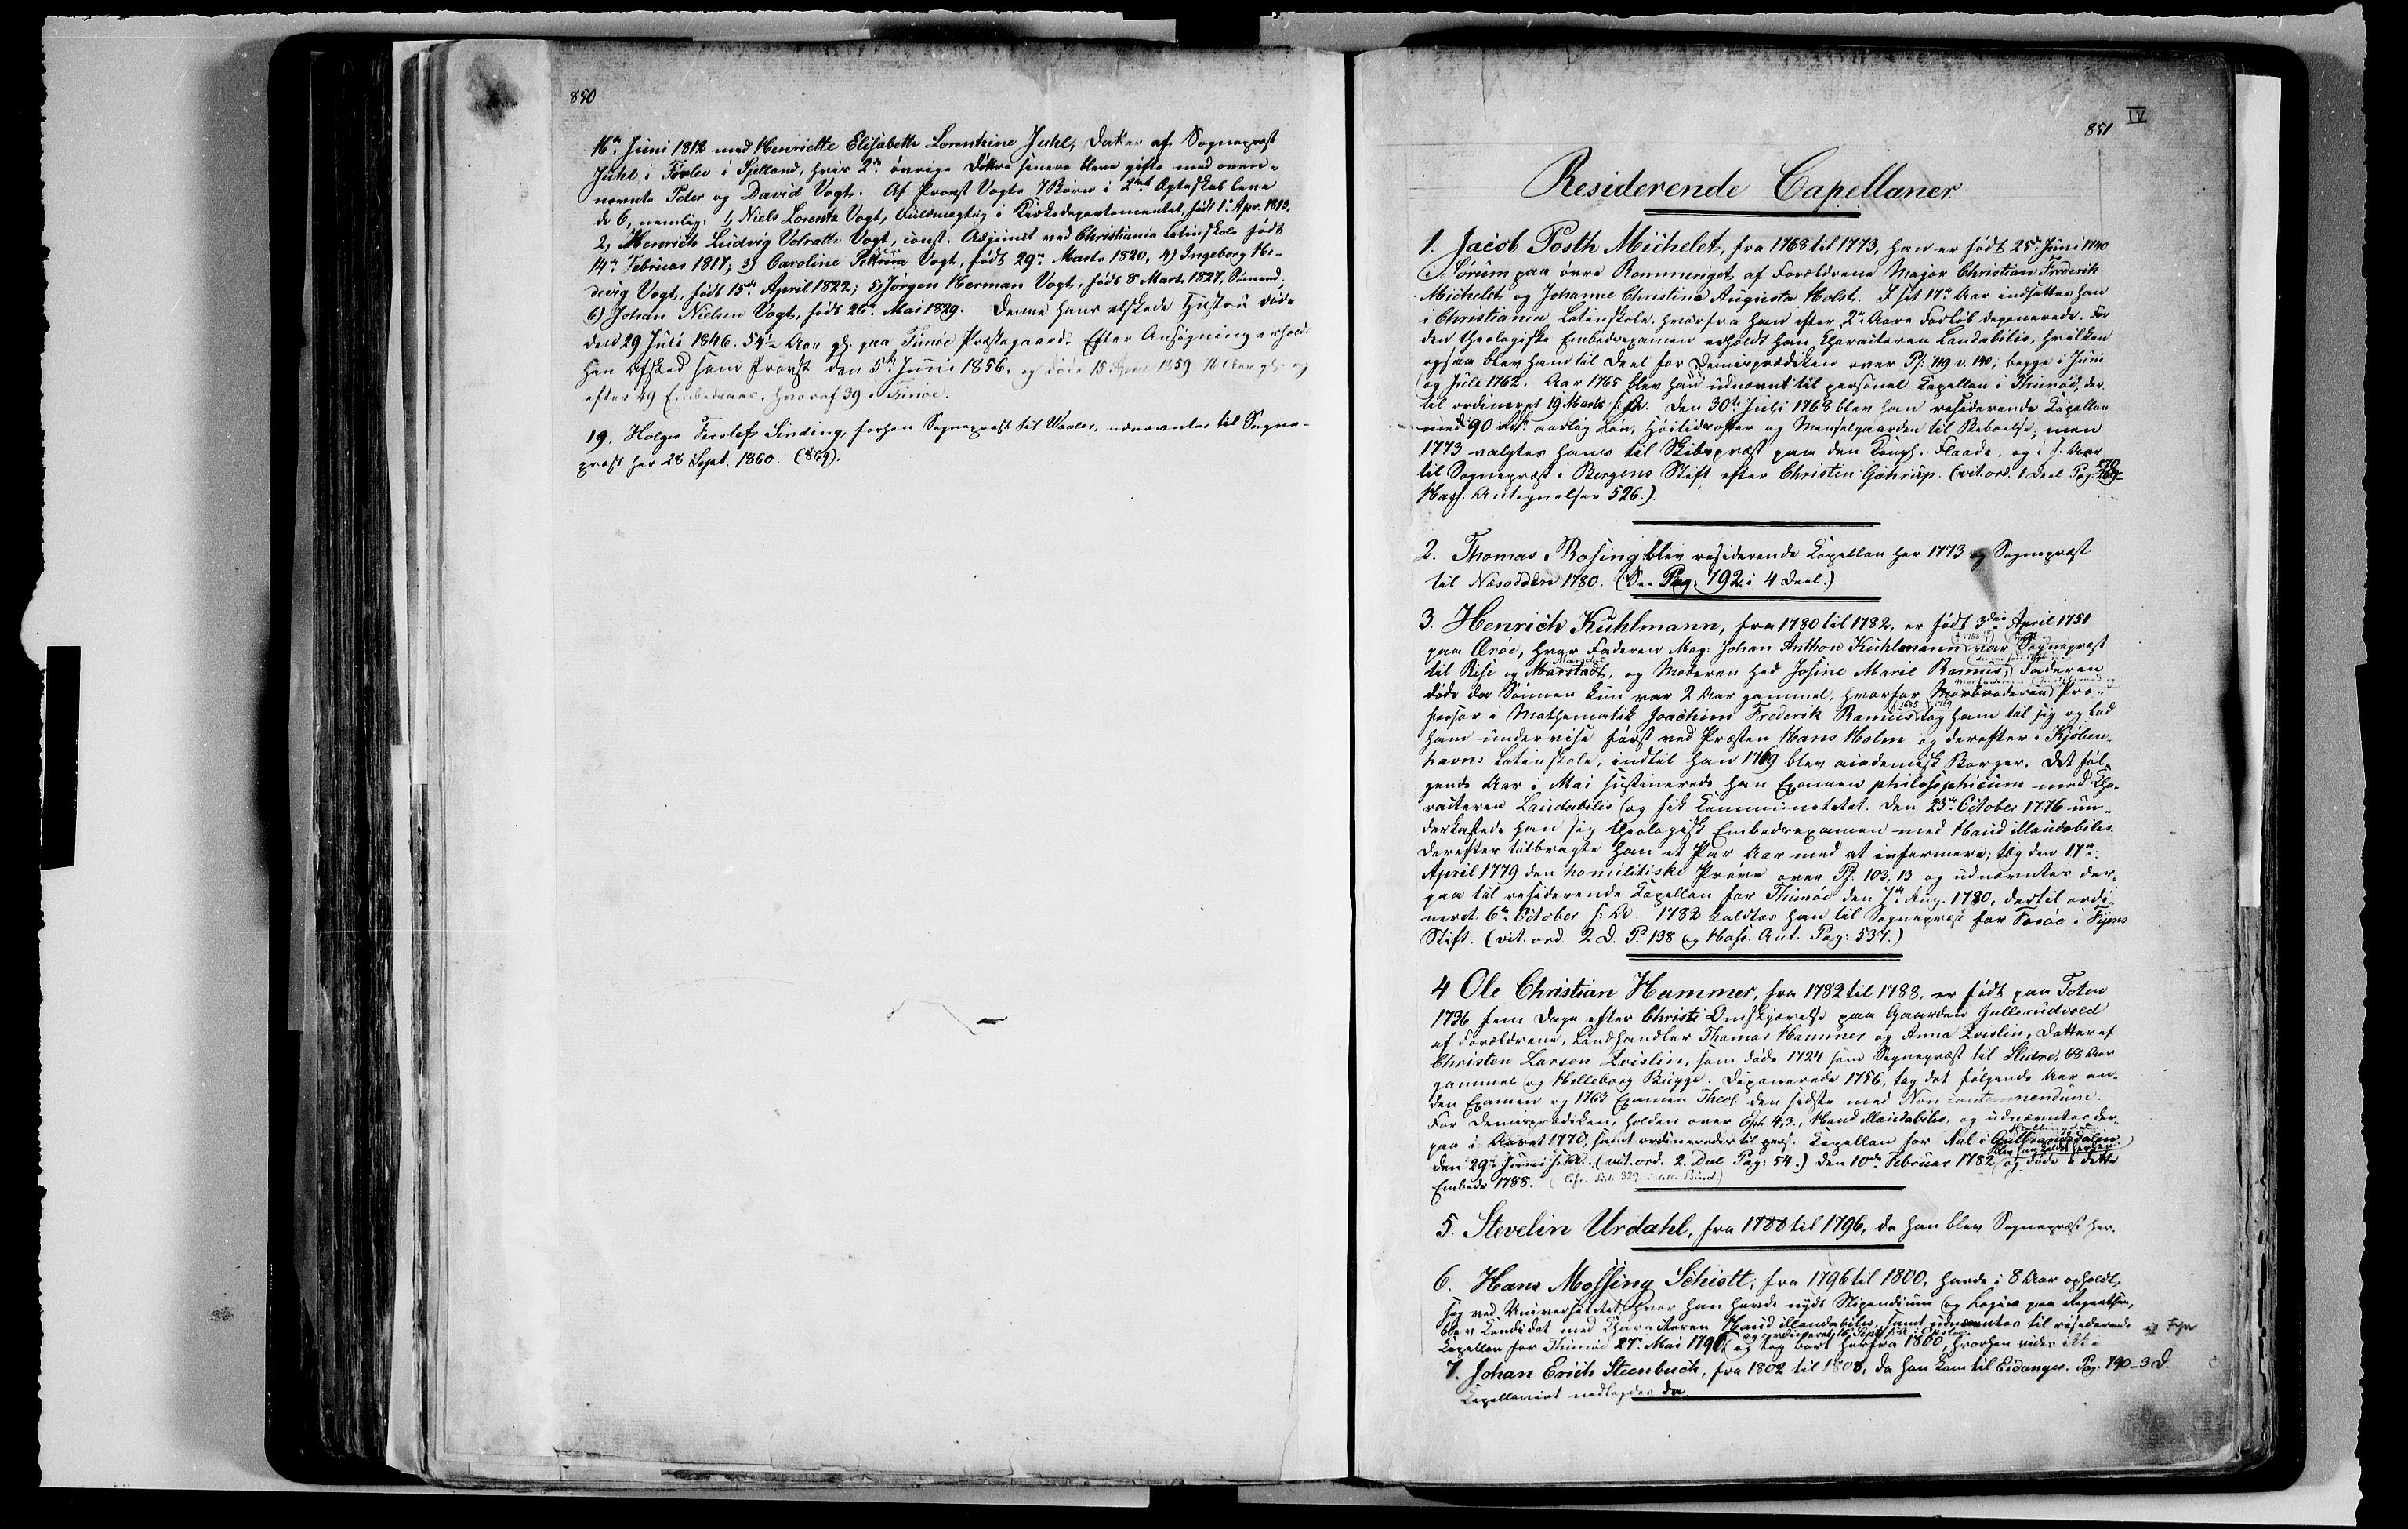 850
16de Juni 1812 med Henriette Elisabeth Lorentzine Juhl, Datter af Sognepræst
Juhl i Sjelland, hvis 2de øvrige Døttre senere bleve gifte med oven-
nævnte Peter og David Vogt. Af Provst Vogts 7 Børn i 2det Ægteskab leve
de 6, nemlig: 1, Niels Lorentz Vogt, Fuldmægtig i Kirkedepartementet, født 1. Apr. 1813.
2, Henrich Ludvig Volrath Vogt, const. Adjunct ved Christiania Latinskole født
14de Februar 1817; 3) Caroline Vogt, født 29de Marts 1820, 4) Ingeborg He-
devig Vogt, født 15de April 1822; 5) Jørgen Herman Vogt, født 8 Mart. 1827, Sømand;
6) Johan Nielsen Vogt, født 26. Mai 1829. Denne hans elskede Hustru døde
den 29 Juli 1846. 54½ Aar gl. paa Tunøe Præstegaard. Efter Ansøgning erholdt
han Afsked som Provst den 5te Juni 1856. og døde 15 1859 Aar gl. og
efter 49 Embedsaar, hvoraf 39 i Tunöe.
19. Holger Sinding, forhen Sognepræst til Vaaler, udnævntes til Sogne-
præst her 28 Sept. 1860. (869).
IV
851
Residerende Capellaner
1. Jacob Posth Michelet, fra 1768 til 1773, han er født 25de Juni 1740
i Sørum paa øvre Rommeriget, af Forældrene Major Christian Frederik
Michelet og Johanne Christine Augusta Holst. I sit 17de Aar indsattes han
i Christiania Latinskole, hvorfra han efter 2de Aars Forløb deponerede. For
den theologiske Embedsexamen erholdt han Charakteren Laudabilis, hvilken
ogsaa blev ham til Deel for Demisprædiken over Ps: 119 v. 140; begge i Juni
og Juli 1762. Aar 1765 blev han udnævnt til personel Kapellan i Thunöe, der-
til ordineret 19 Marts s: A. Den 30te Juli 1768 blev han residerende Kapellan
med 90 aarlig Løn, Høitidsoffer og Menselgaarden til Beboelse, men
1773 valgtes han til Skibspræst paa den Kongl. Flaade, og i s. Aar
til Sognepræst i Bergens Stift efter Christen Gähtrup. (vit. ord. 1 Deel Pag: 269-
270
Hass. Antegnelser 526.)
2. Thomas Rosing blev residerende Kapellan her 1773 og Sognepræst
til Næsodden 1780. (See Pag. 792 i 4 Deel.)
3. Henrich Kuhlmann, fra 1780 til 1782, er født 3die April 1751
paa Ærøe, hvor Faderen Mag: Johan Anthon Kuhlmann var Sognepræst
til Rise og Marstadt, og Moderen hed Josine Marie Ramus, Faderen
døde da Sønnen kun var 2 Aar gammel, hvorfor Morbroderen Pro-
fessor i Mathematik Joachim Frederik Ramus tog ham til sig og lod
ham undervise først ved Præsten Hans Holm og derefter i Kjøben-
havns Latinskole, indtil han 1769 blev academisk Borger. Det føl-
gende Aar i Mai sustinerede han Examen philosophicum med Cha-
racteren Laudabilis og fik Communitetet. Den 23de October 1776 un-
derkastede han sig theologisk Embedsexamen med Haud illaudabilis.
Derefter tilbragte han et Par Aar med at informere; tog den 17de
April 1779 den homilitiske Prøve over Ps. 103, 13 og udnævntes der-
paa til residerende Kapellan for Thunöe den Aug. 1780, dertil ordi-
neret 6te October s: A. 1782 kaldtes han til Sognepræst for i Fyens
Stift. (vit. ord. 2 D. P. 138 og Hass. Ant. Pag: 537.)
4 Ole Christian Hammer, fra 1782 til 1788, er født paa Toten
1736 fem Dage efter Christi Omskjærelse paa Gaarden Gullerudvold
af Forældrene, Landhandler Thomas Hammer og Anna Zvislin, Datter af
Christen Larsen Zvislin, som døde 1724 som Sognepræst til Slidre, 68 Aar
gammel og Helleborg Bugge. Deponerede 1756, tog det følgende Aar an-
den Examen og 1762 Examen Theol. den sidste med Non contemnendum.
For Demisprædiken, holden over Eph. 4,3., Haud illaudabilis, og udnævntes der-
paa i Aaret 1770, samt ordineredes til pers. Kapellan for Aal i Gulbrandsdalen
den 29de Juni s. A. (vit. ord. 2. Deel Pag: 54.) Den 10de Februar 1782 blev han kaldet herhen og døde i dette
Embede 1788. (Cfr. Side 329 i dette Bind.)
5. Stevelin Urdahl, fra 1788 til 1796, da han blev Sognepræst her.
6. Hans Mossing Schiøtt, fra 1796 til 1800, havde i 8 Aar opholdt
sig ved Universitetet, hvor han havde nydt Stipendium og Logie paa Regentsen,
blev Candidat med Characteren Haud illaudabilis, samt udnævntes til residerende
Kapellan for Thunöe 27. Mai 1796, og tog bort herfra 1800, hvorhen vides ikke.
7. Johan Erich Steenbuch, fra 1802 til 1808, da han kom til Eidanger. Pag. 790-3 D.
Kapellaniet nedlagdes da.